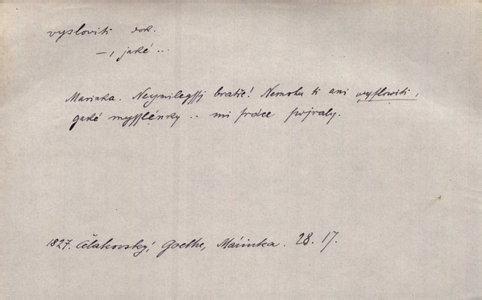 vysloviti dok.
–, jaké ..
Marinka. Neymilegssj bratře! Nemohu ti ani wyslowiti,
gaké mysslénky .. mi srdce pojraly.
1827. Čelakovský, Goethe, Márinka. 28. 17.